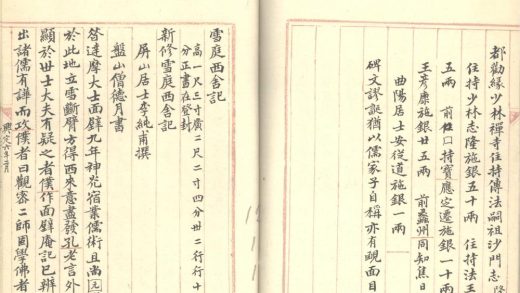 都勸緣少林禪寺住持傳法嗣祖沙門志隆
住持少林志隆施銀五十兩 住持法王
五兩 前住口持寶應定遷施銀一十兩
王彥廉施銀廿五兩 前蠡州同知焦日
曲陽居士安從道施銀一兩
碑文謬誕猶以儒家子自稱亦有靦面目
雪庭西舍記
高一尺三寸廣二尺二寸四分卅二行行十
分正書在登封
新修雪庭西舍記
屏山居士李純甫撰
盤山僧德月書
昝達摩大士面壁九年神光宿業儒術且尚元
於此地立雪斷臂方得西來意盡發孔老言外
顯於世士大夫有疑之者僕作面壁庵記已辨
出諸儒有譁而攻僕者曰觀密二師固學佛者
興定六年二月